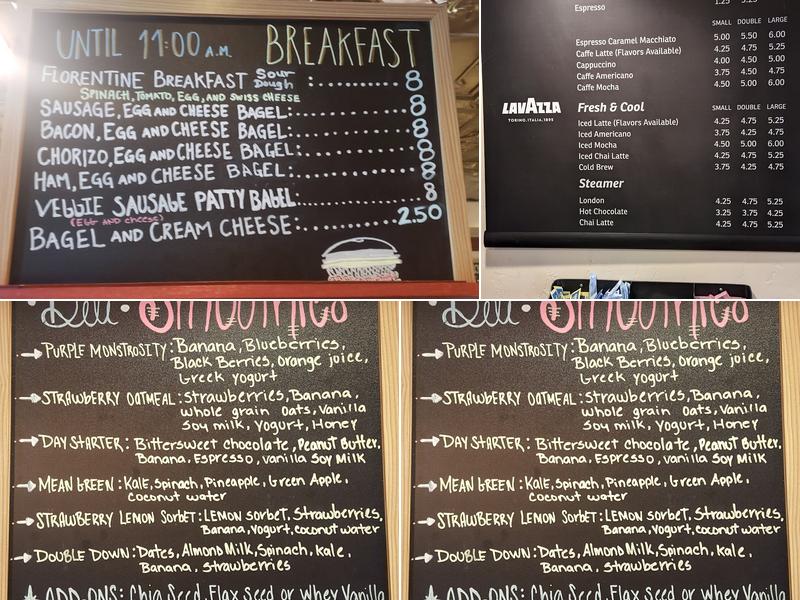 UNTIL 11:00 A.M. BREAKFAST
FLORENTINE BREAKFAST Sour Dough :........ 8
SPINACH, TOMATO, EGG, AND SWISS CHEESE
SAUSAGE, EGG AND CHEESE BAGEL:.......... 8
BACON, EGG AND CHEESE BAGEL:.......... 8
CHORIZO, EGG AND CHEESE BAGEL:.......... 8
HAM, EGG AND CHEESE BAGEL:.......... 8
VEGGIE SAUSAGE PATTY BAGEL.......... 8
(EGG AND cheese)
BAGEL AND CREAM CHEESE:.......... 2.50
Espresso 1.25
SMALL DOUBLE LARGE
Espresso Caramel Macchiato 5.00 5.50 6.00
Caffe Latte (Flavors Available) 4.25 4.75 5.25
Cappuccino 4.00 4.50 5.00
Caffe Americano 3.75 4.50 4.75
Caffe Mocha 4.50 5.00 6.00
LAVAZZA
TORINO, ITALIA, 1895
Fresh & Cool SMALL DOUBLE LARGE
Iced Latte (Flavors Available) 4.25 4.75 5.25
Iced Americano 3.75 4.25 4.75
Iced Mocha 4.50 5.00 6.00
Iced Chai Latte 4.25 4.75 5.25
Cold Brew 3.75 4.25 4.75
Steamer
London 4.25 4.75 5.25
Hot Chocolate 3.25 3.75 4.25
Chai Latte 4.25 4.75 5.25
Deli · Smoothies
PURPLE MONSTROSITY: Banana, Blueberries,
Black Berries, Orange juice,
Greek yogurt
STRAWBERRY OATMEAL: Strawberries, Banana,
whole grain oats, Vanilla
Soy milk, Yogurt, Honey
DAY STARTER: Bittersweet chocolate, Peanut Butter,
Banana, Espresso, vanilla Soy Milk
MEAN GREEN: Kale, Spinach, Pineapple, Green Apple,
coconut water
STRAWBERRY LEMON SORBET: LEMON sorbet, Strawberries,
Banana, Yogurt, coconut water
DOUBLE DOWN: Dates, Almond Milk, Spinach, Kale,
Banana, strawberries
ADD-ONS: Chia Seed, Flax seed or Whey Vanilla
Deli · Smoothies
PURPLE MONSTROSITY: Banana, Blueberries,
Black Berries, Orange juice,
Greek yogurt
STRAWBERRY OATMEAL: Strawberries, Banana,
whole grain oats, Vanilla
Soy milk, Yogurt, Honey
DAY STARTER: Bittersweet chocolate, Peanut Butter,
Banana, Espresso, vanilla Soy Milk
MEAN GREEN: Kale, Spinach, Pineapple, Green Apple,
coconut water
STRAWBERRY LEMON SORBET: LEMON sorbet, Strawberries,
Banana, Yogurt, coconut water
DOUBLE DOWN: Dates, Almond Milk, Spinach, Kale,
Banana, strawberries
ADD-ONS: Chia Seed, Flax seed or Whey Vanilla